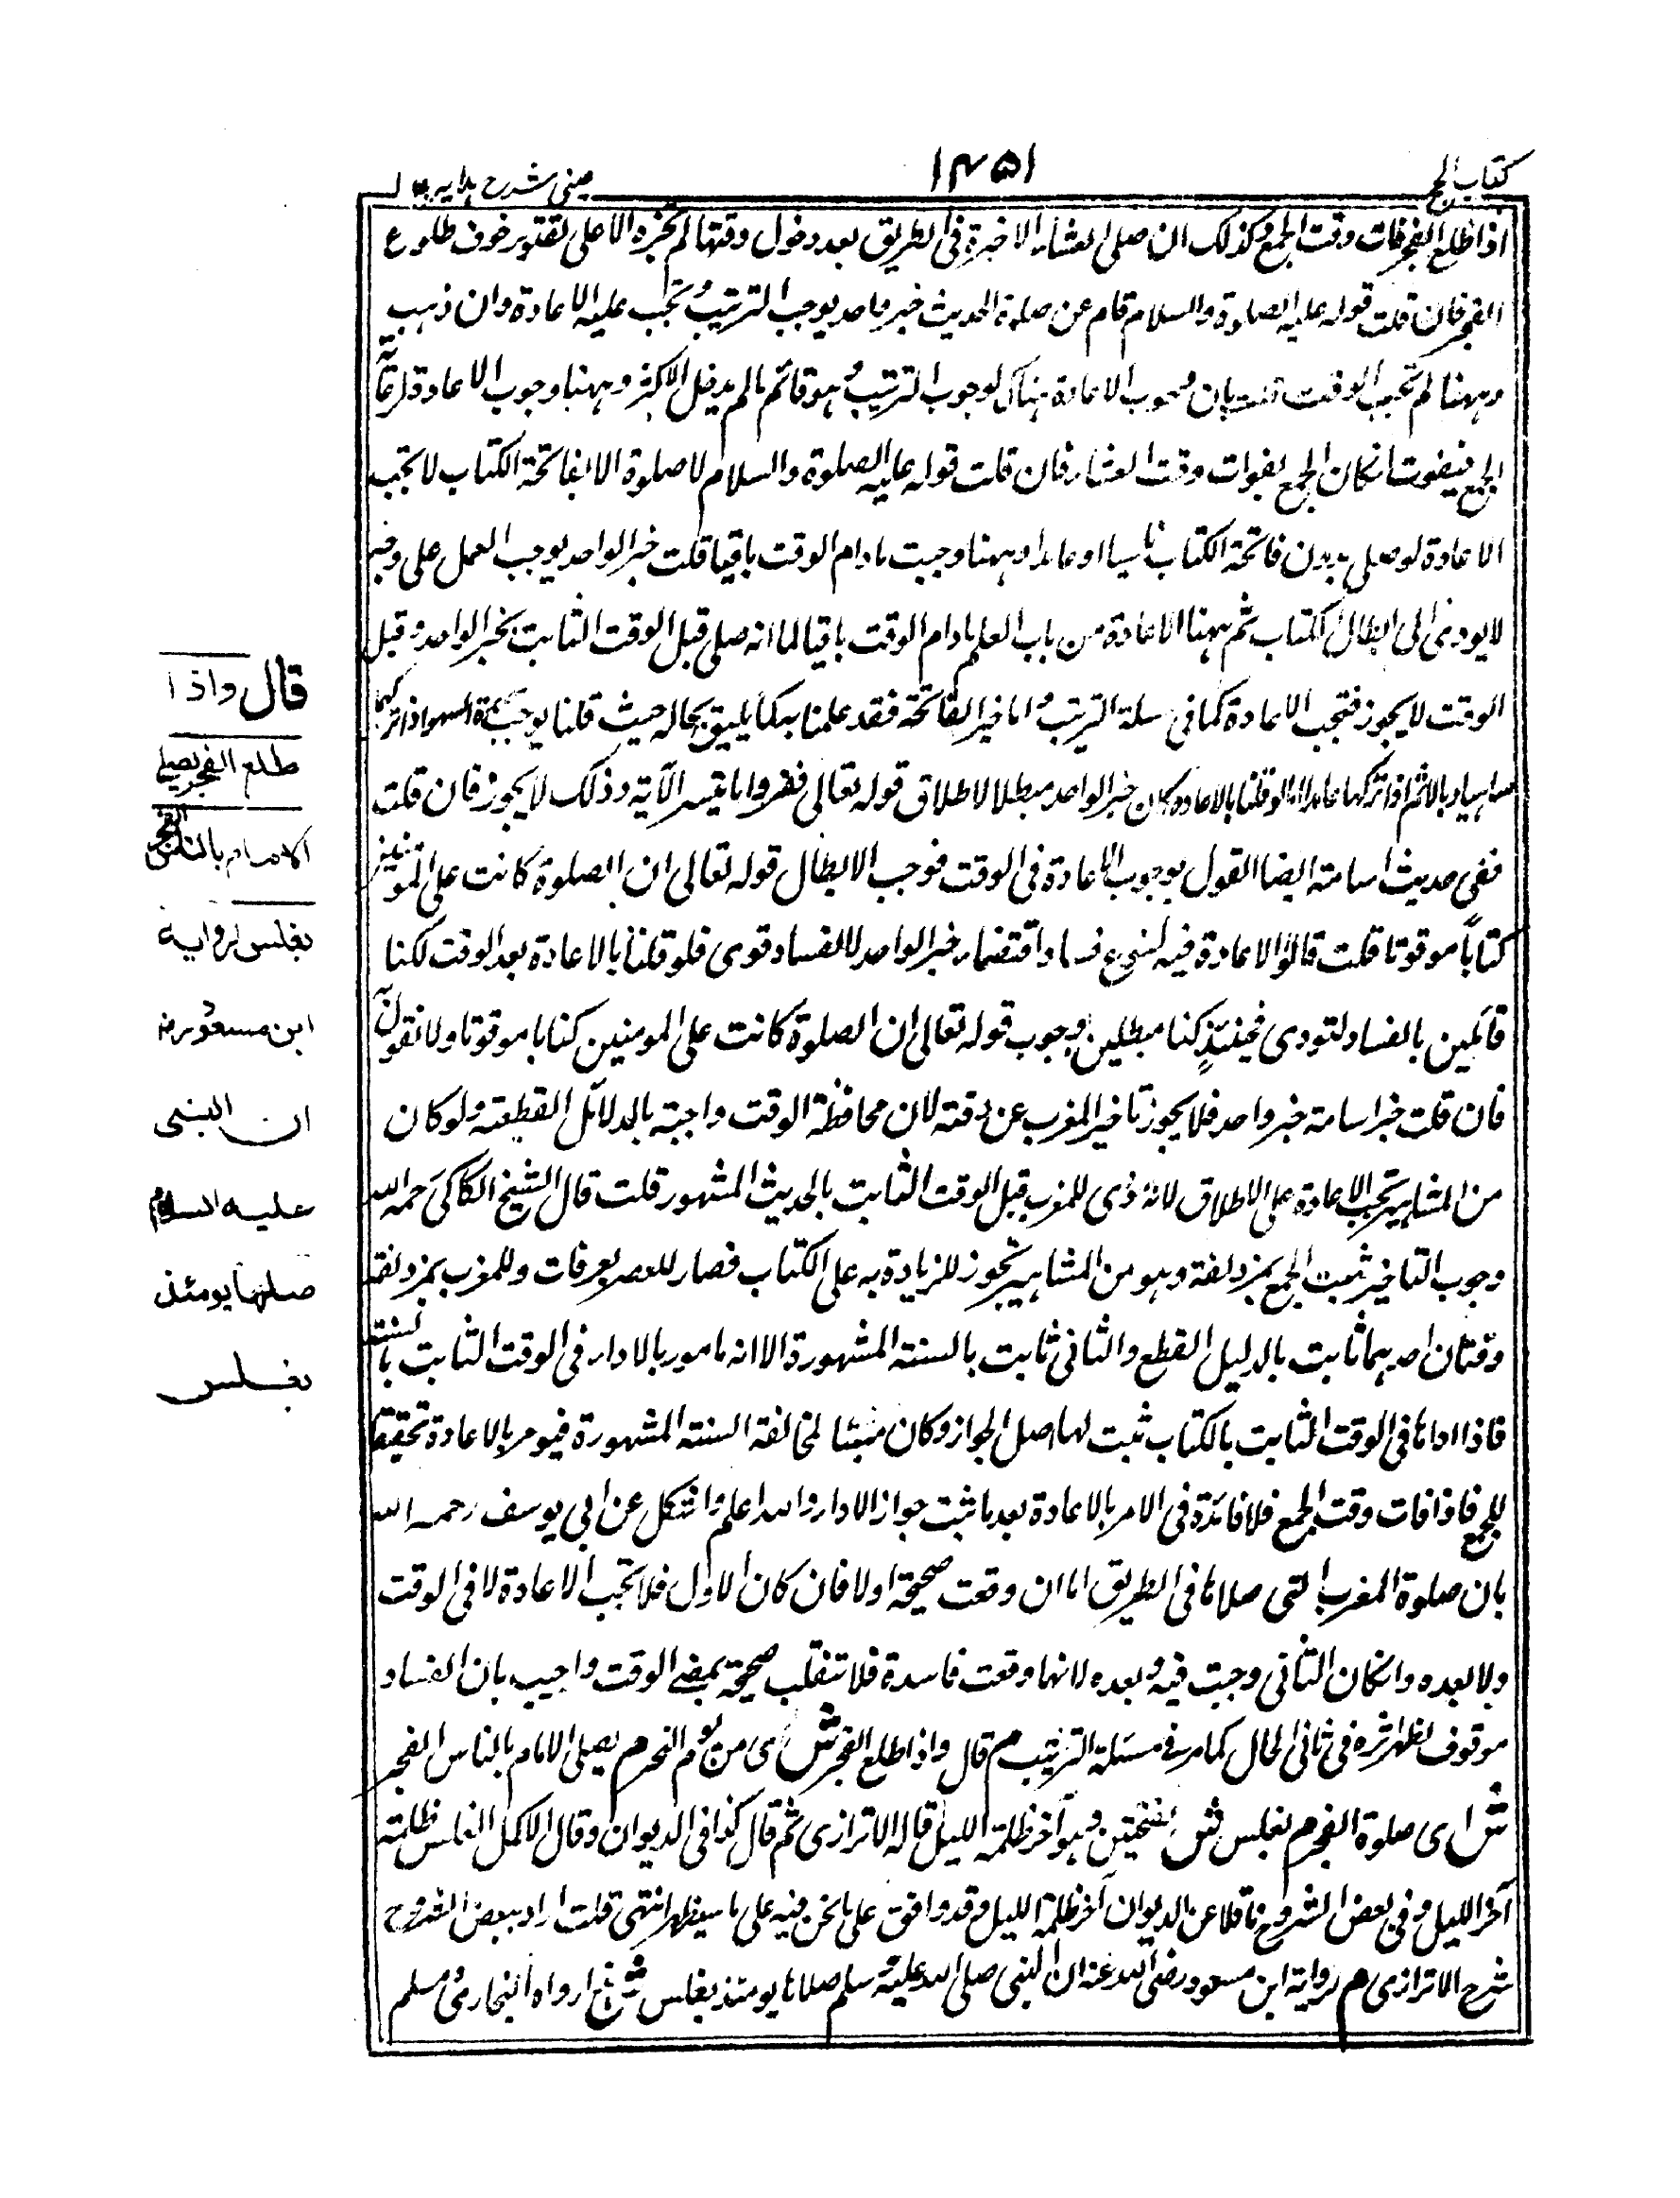 كتاب الحج
١٤٥١
عينى شرح هدايه ج ١
اذا طلع الفجر فات وقت الجمع وكذلك ان صلى العشاء الاخيرة فى الطريق بعد دخول وقتها لم تجزه الا على تقدير خوف طلوع
الفجر فان قلت قوله عليه الصلوة والسلام قام عن صلوة الحديث خبر واحد يوجب الترتيب وتجب عليه الاعادة وان ذهب
وههنا لم تجب الوقت قلت بان وجوب الاعادة هناك لوجوب الترتيب وهو قائم ما لم يدخل الاكثر وههنا وجوب الاعادة لرعاية
الجمع فيفوت امكان الجمع بفوات وقت العشاء فان قلت قوله عليه الصلوة والسلام لا صلوة الا بفاتحة الكتاب لا يجب
الاعادة لو صلى بدون فاتحة الكتاب ناسيا او عامدا وههنا وجبت مادام الوقت باقيا قلت خبر الواحد يوجب العمل على وجه
لا يودى الى ابطال الكتاب ثم ههنا الاعادة من باب العلم مادام الوقت باقيا لما انه صلى قبل الوقت الثابت بخبر الواحد وقبل
الوقت لا يجوز فتجب الاعادة كما فى مسئلة الترتيب واما خبر الفاتحة فقد علمنا به كما يليق بحاله حيث قلنا بوجب سجدة السهو اذا تركها
ساهيا وبالاثم اذا تركها عامدا اذ لو قلنا بالاعادة كان خبر الواحد مبطلا لاطلاق قوله تعالى فاقرؤا ما تيسر الآية وذلك لا يجوز فان قلت
ففى حديث اسامة ايضا القول بوجوب الاعادة فى الوقت فوجب الابطال قوله تعالى ان الصلوة كانت على المومنين
كتابا موقوتا قلت قالوا الاعادة فيه لنوع فساد واقتضاء خبر الواحد لا لفساد قوى فلو قلنا بالاعادة بعد الوقت لكنا
قائلين بالفساد لتودى فحينئذ كنا مبطلين وجوب قوله تعالى ان الصلوة كانت على المومنين كتابا موقوتا ولا نقول به
فان قلت خبر اسامة خبر واحد فلا يجوز تاخير المغرب عن وقته لان محافظة الوقت واجبة بالدلائل القطعية ولو كان
من المشاهير تجب الاعادة على الاطلاق لانه ادى للمغرب قبل الوقت الثابت بالحديث المشهور قلت قال الشيخ الكاكى رحمه الله
وجوب التاخير ثبت الجمع بمزدلفة وهو من المشاهير تجوز الزيادة به على الكتاب فصار للعصر بعرفات وللمغرب بمزدلفة
وقتان احدهما ثابت بالدليل القطع والثانى ثابت بالسنة المشهورة الا انه مامور بالاداء فى الوقت الثابت بالسنة
فاذا اداها فى الوقت الثابت بالكتاب ثبت لها اصل الجواز وكان مسيئا لمخالفة السنة المشهورة فيومر بالاعادة تحقيقا
للجمع فاذا فات وقت الجمع فلا فائدة فى الامر بالاعادة بعد ما ثبت جواز الاداء والله اعلم واشكل عن ابي يوسف رحمه الله
بان صلوة المغرب التى صلاها فى الطريق اما ان وقعت صحيحة اولا فان كان الاول فلا تجب الاعادة لا فى الوقت
ولا بعده وان كان الثانى وجبت فيه وبعده لانها وقعت فاسدة فلا تنقلب صحيحة بمضى الوقت واجيب بان الفساد
موقوف يظهر اثره فى ثانى الحال كما مر فى مسئلة الترتيب م قال واذا طلع الفجر ش اى من يوم النحر م يصلى الامام بالناس الفجر
ش اى صلوة الفجر م بغلس ش بفتحتين وهو آخر ظلمة الليل قاله الاترازى ثم قال كذا فى الديوان وقال الاكمل الغلس ظلمة
آخر الليل وفى بعض الشروح ناقلا عن الديوان آخر ظلمة الليل وقد وافق على ما نحن فيه على ما سيظهر انتهى قلت اراد ببعض الشروح
شرح الاترازى م لرواية ابن مسعود رضى الله عنه ان النبى صلى الله عليه وسلم صلاها يومئذ بغلس ش رواه البخارى ومسلم
قال واذا
طلع الفجر يصلى
الامام بالناس الفجر
بغلس لرواية
ابن مسعود رض
ان النبى
عليه السلام
صلاها يومئذ
بغلس